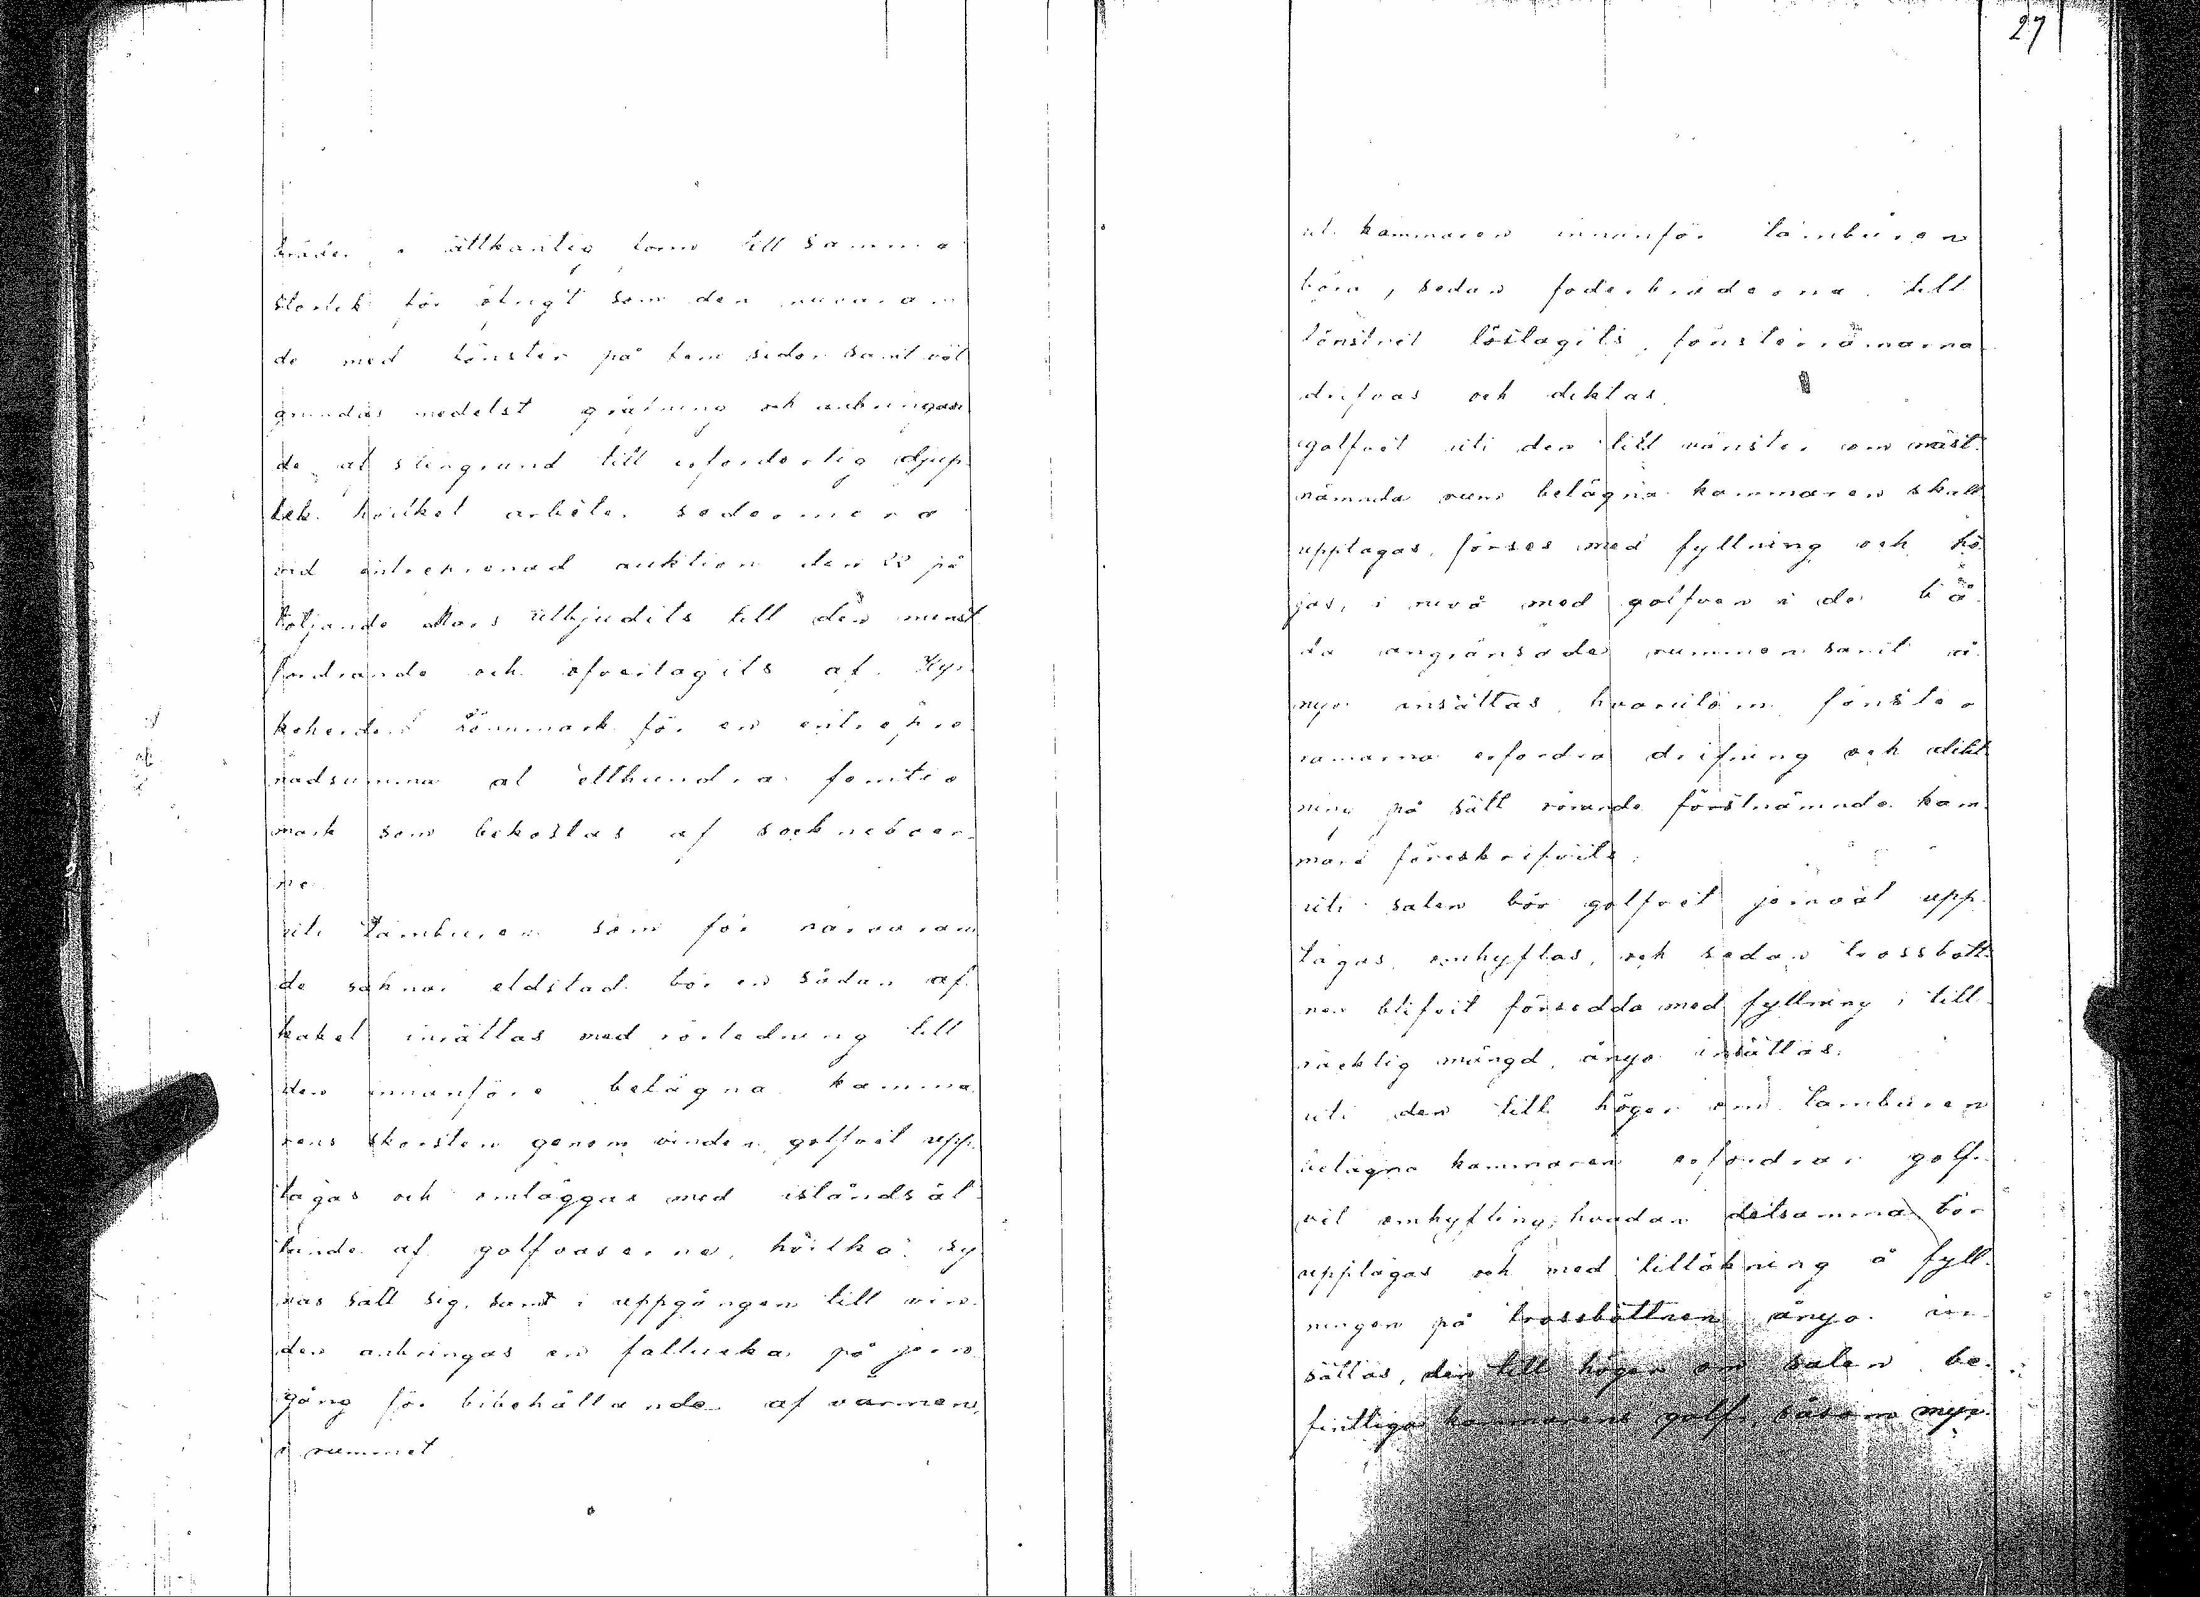 bräder i åttkantig form till samma
storlek för öfrigt som den nuvaran
de med fönster på fem sidor samt väl
grundas medelst gräfning och anbringan
de af stengrund till erforderlig djup
lek hvilket arbete sedermera
vid entreprenad auktion den 22 på
följande Mars utbjudits till den minst
fordrande och öfvertagits af Kyr
koherden Lönnmark för en entrepre
nadsumma af etthundra femtio
mark som bekostas af sockneboer
ne.
uti tamburen som för närvaran
de saknar eldstad bör en sådan af
kakel insättas med rörledning till
den innanföre belägna kamma
rens skorsten genom vinden, golfvet upp
tagas och omläggas med iståndsät
tande af golfvaserne, hvilka sy
nas satt sig, samt i uppgången till vin
den anbringas en fallucka på jern
gång för bibehållande af varmen
i rummet
27
uti kammaren innanför tamburen
böra, sedan foderbräderna till
fönstret löstagits, fönsterrämarna
drifvas och diktas.
golfvet uti den till vänster om näst
nämnda rum belägna kammaren skall
upptagas, förses med fyllning och hö
jas, i nivå med golfven i de bå
da angränsade rummen samt å
nyo insättas, hvarutöm fönster
ramarna erfordra drifning och dikt
ning på sätt rörande förstnämnda kam
mare föreskrifvits.
uti salen bör golfvet jemväl upp
tagas, omhyflas, och sedan trossbott
nen blifvit försedda med fyllning i till
räcklig mängd, ånyo insättas.
uti den till höger om tamburen
belägna kammaren erfordrar golf
vet omhyfling, hvadan detsamma bör
upptagas och med tillökning å fyll
ningen på trossbottnen ånyo in
sättas, den till höger om salen be
fintliga kammarens golf, såsom myc